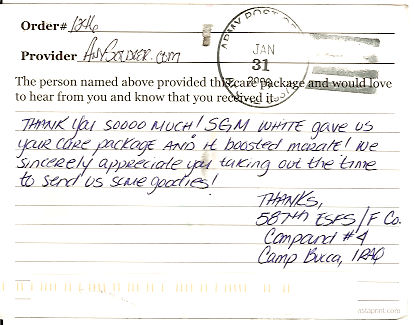 Order# 1346
Provider AnySoldier.com
The person named above provided this care package and would love
to hear from you and know that you received it.
ARMY POST OF
JAN
31
THANK YOU SOOOO MUCH! SGM WHITE gave us
your care package AND it boosted morale! We
sincerely appreciate you taking out the time
to send us some goodies!
THANKS,
587th ESFS/F Co.
Compound #4
Camp Bucca, IRAQ